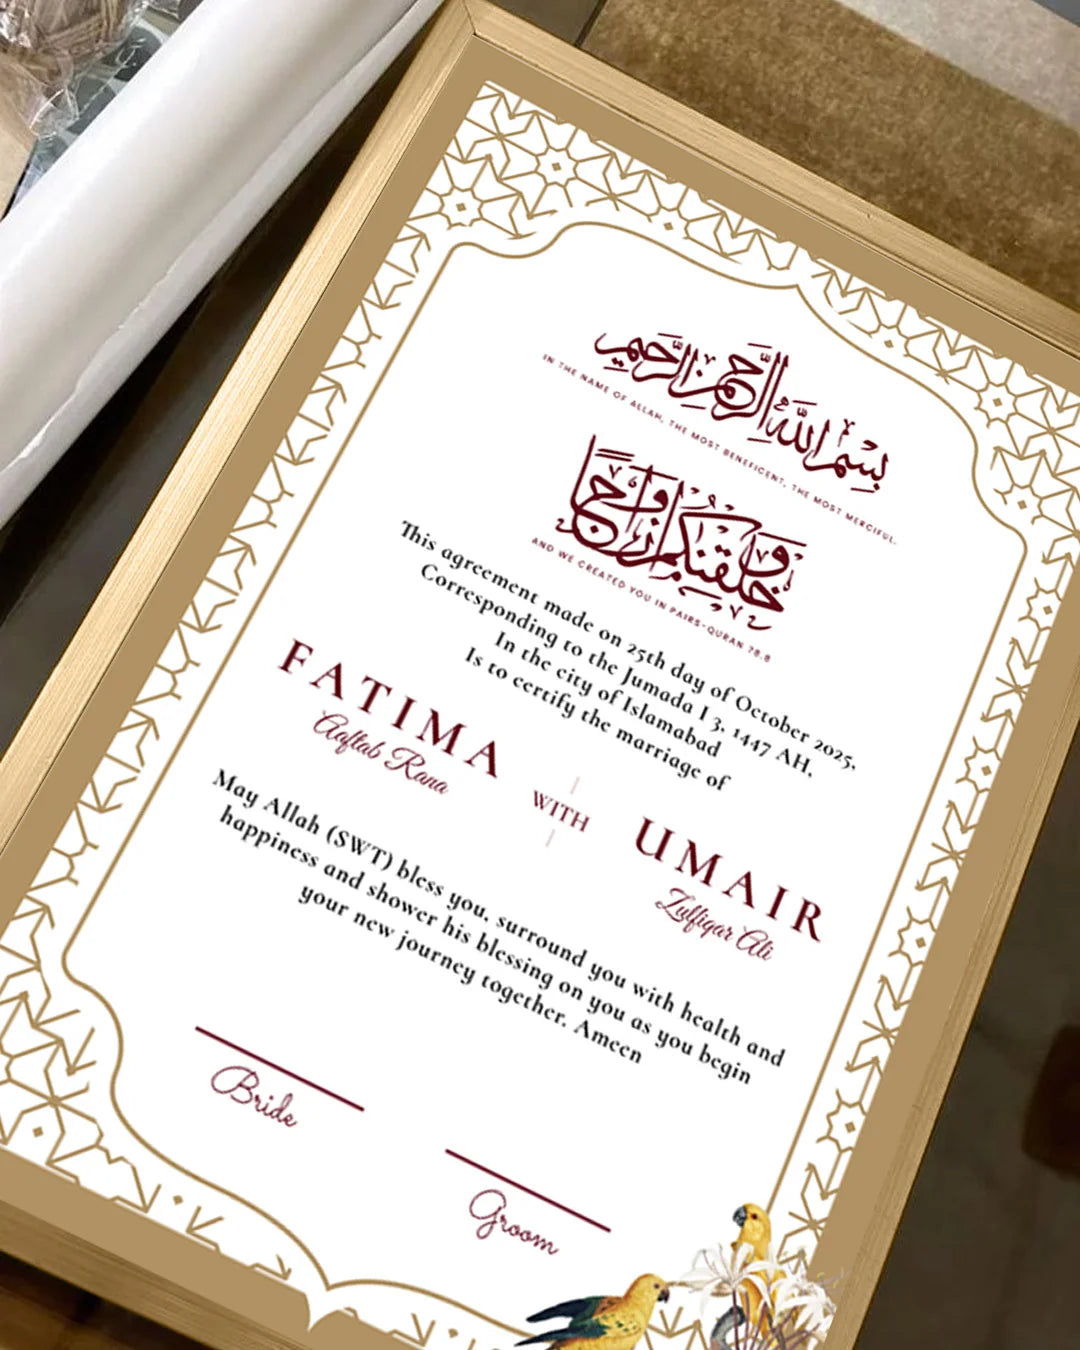 بِسْمِ اللهِ الرَّحْمٰنِ الرَّحِيمِ
IN THE NAME OF ALLAH, THE MOST BENEFICENT, THE MOST MERCIFUL.
وَخَلَقْنٰكُمْ اَزْوَاجًا
AND WE CREATED YOU IN PAIRS-QURAN 78:8
This agreement made on 25th day of October 2025,
Corresponding to the Jumada I 3, 1447 AH,
In the city of Islamabad
Is to certify the marriage of
FATIMA
Aaftab Rana
WITH
UMAIR
Zulfiqar Ali
May Allah (SWT) bless you, surround you with health and
happiness and shower his blessing on you as you begin
your new journey together. Ameen
Bride
Groom